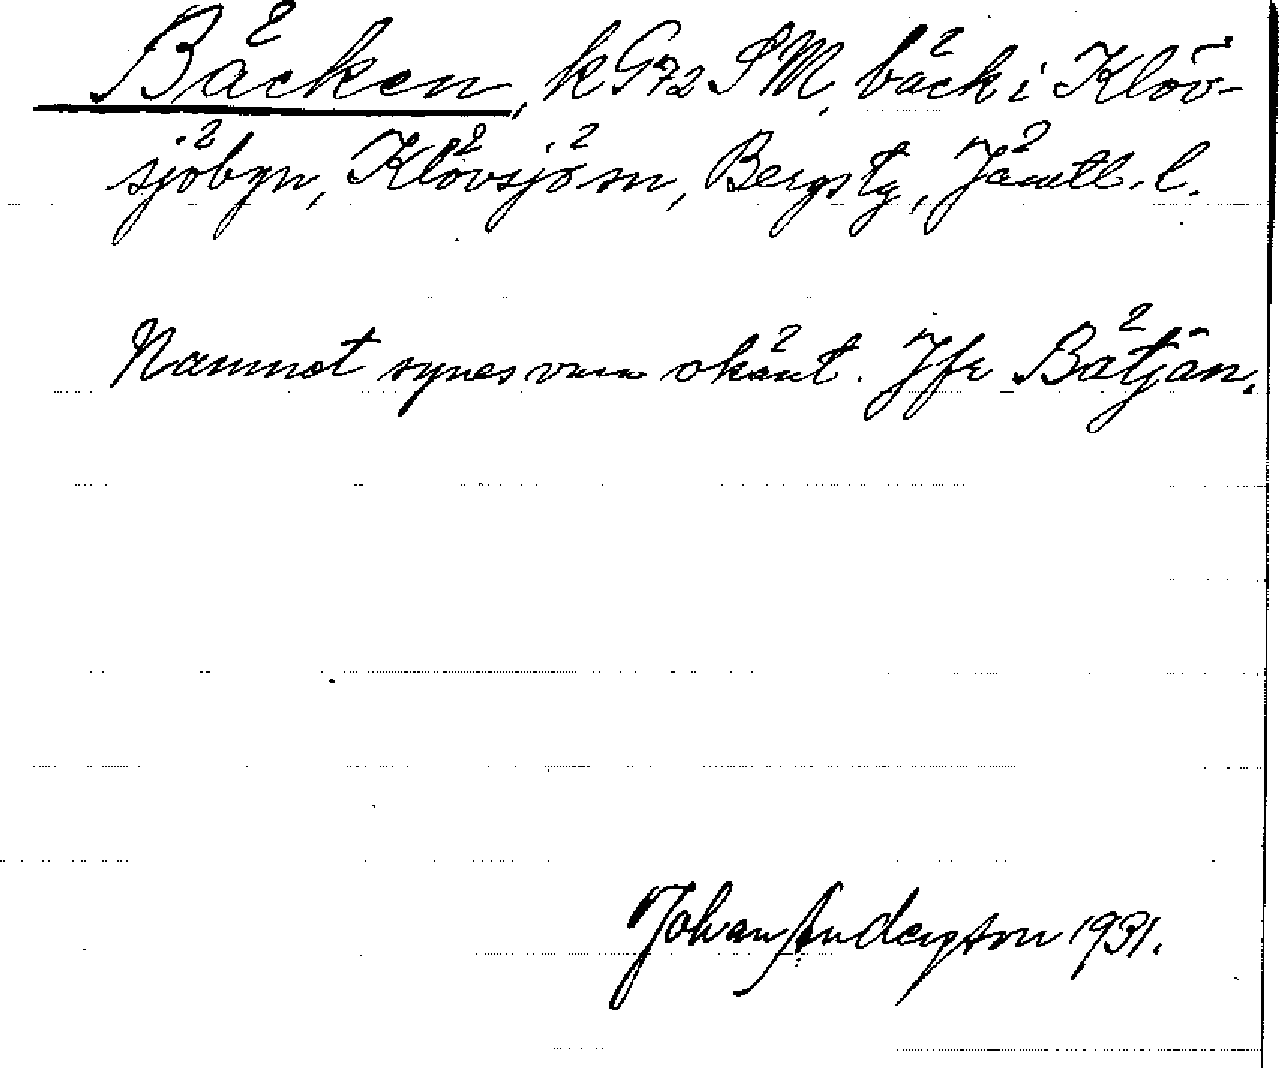 Bäcken, k G72 SM, bäck i Klöv-
sjöbyn, Klövsjö sn, Bergs tg, Jämtl. l.
Namnet synes vara okänt. Jfr Båtjän.
Johan Anderson 1931.